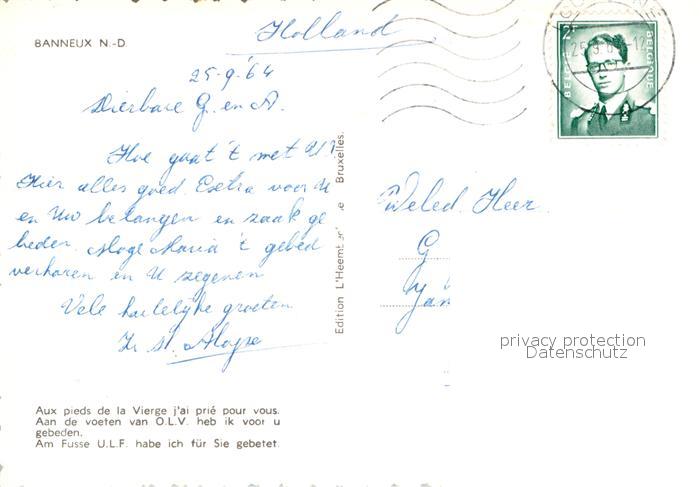 BANNEUX N.-D.
Holland
25-9-'64
Dierbare G. en A.
Hoe gaat 't met U?
Hier alles goed. Extra voor U
en Uw belangen en zaak ge
beden. Moge Maria 't gebed
verhoren en U zegenen
Vele hartelijke groeten
Zr. M. Aloyse
Aux pieds de la Vierge j'ai prié pour vous.
Aan de voeten van O.L.V. heb ik voor u
gebeden.
Am Fusse U.L.F. habe ich für Sie gebetet.
Edition L'Heem Bruxelles.
2F
BELGIE BELGIQUE
Weled. Heer
G
privacy protection
Datenschutz